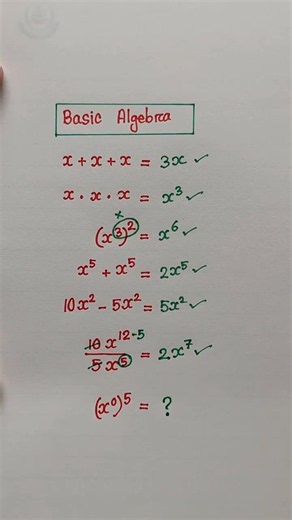 Basic Algebra
x + x + x = 3x ✓
x · x · x = x³ ✓
×
(x³)² = x⁶ ✓
x⁵ + x⁵ = 2x⁵ ✓
10x² - 5x² = 5x² ✓
10 x¹²⁻⁵
5 x⁵ = 2x⁷ ✓
(x⁰)⁵ = ?